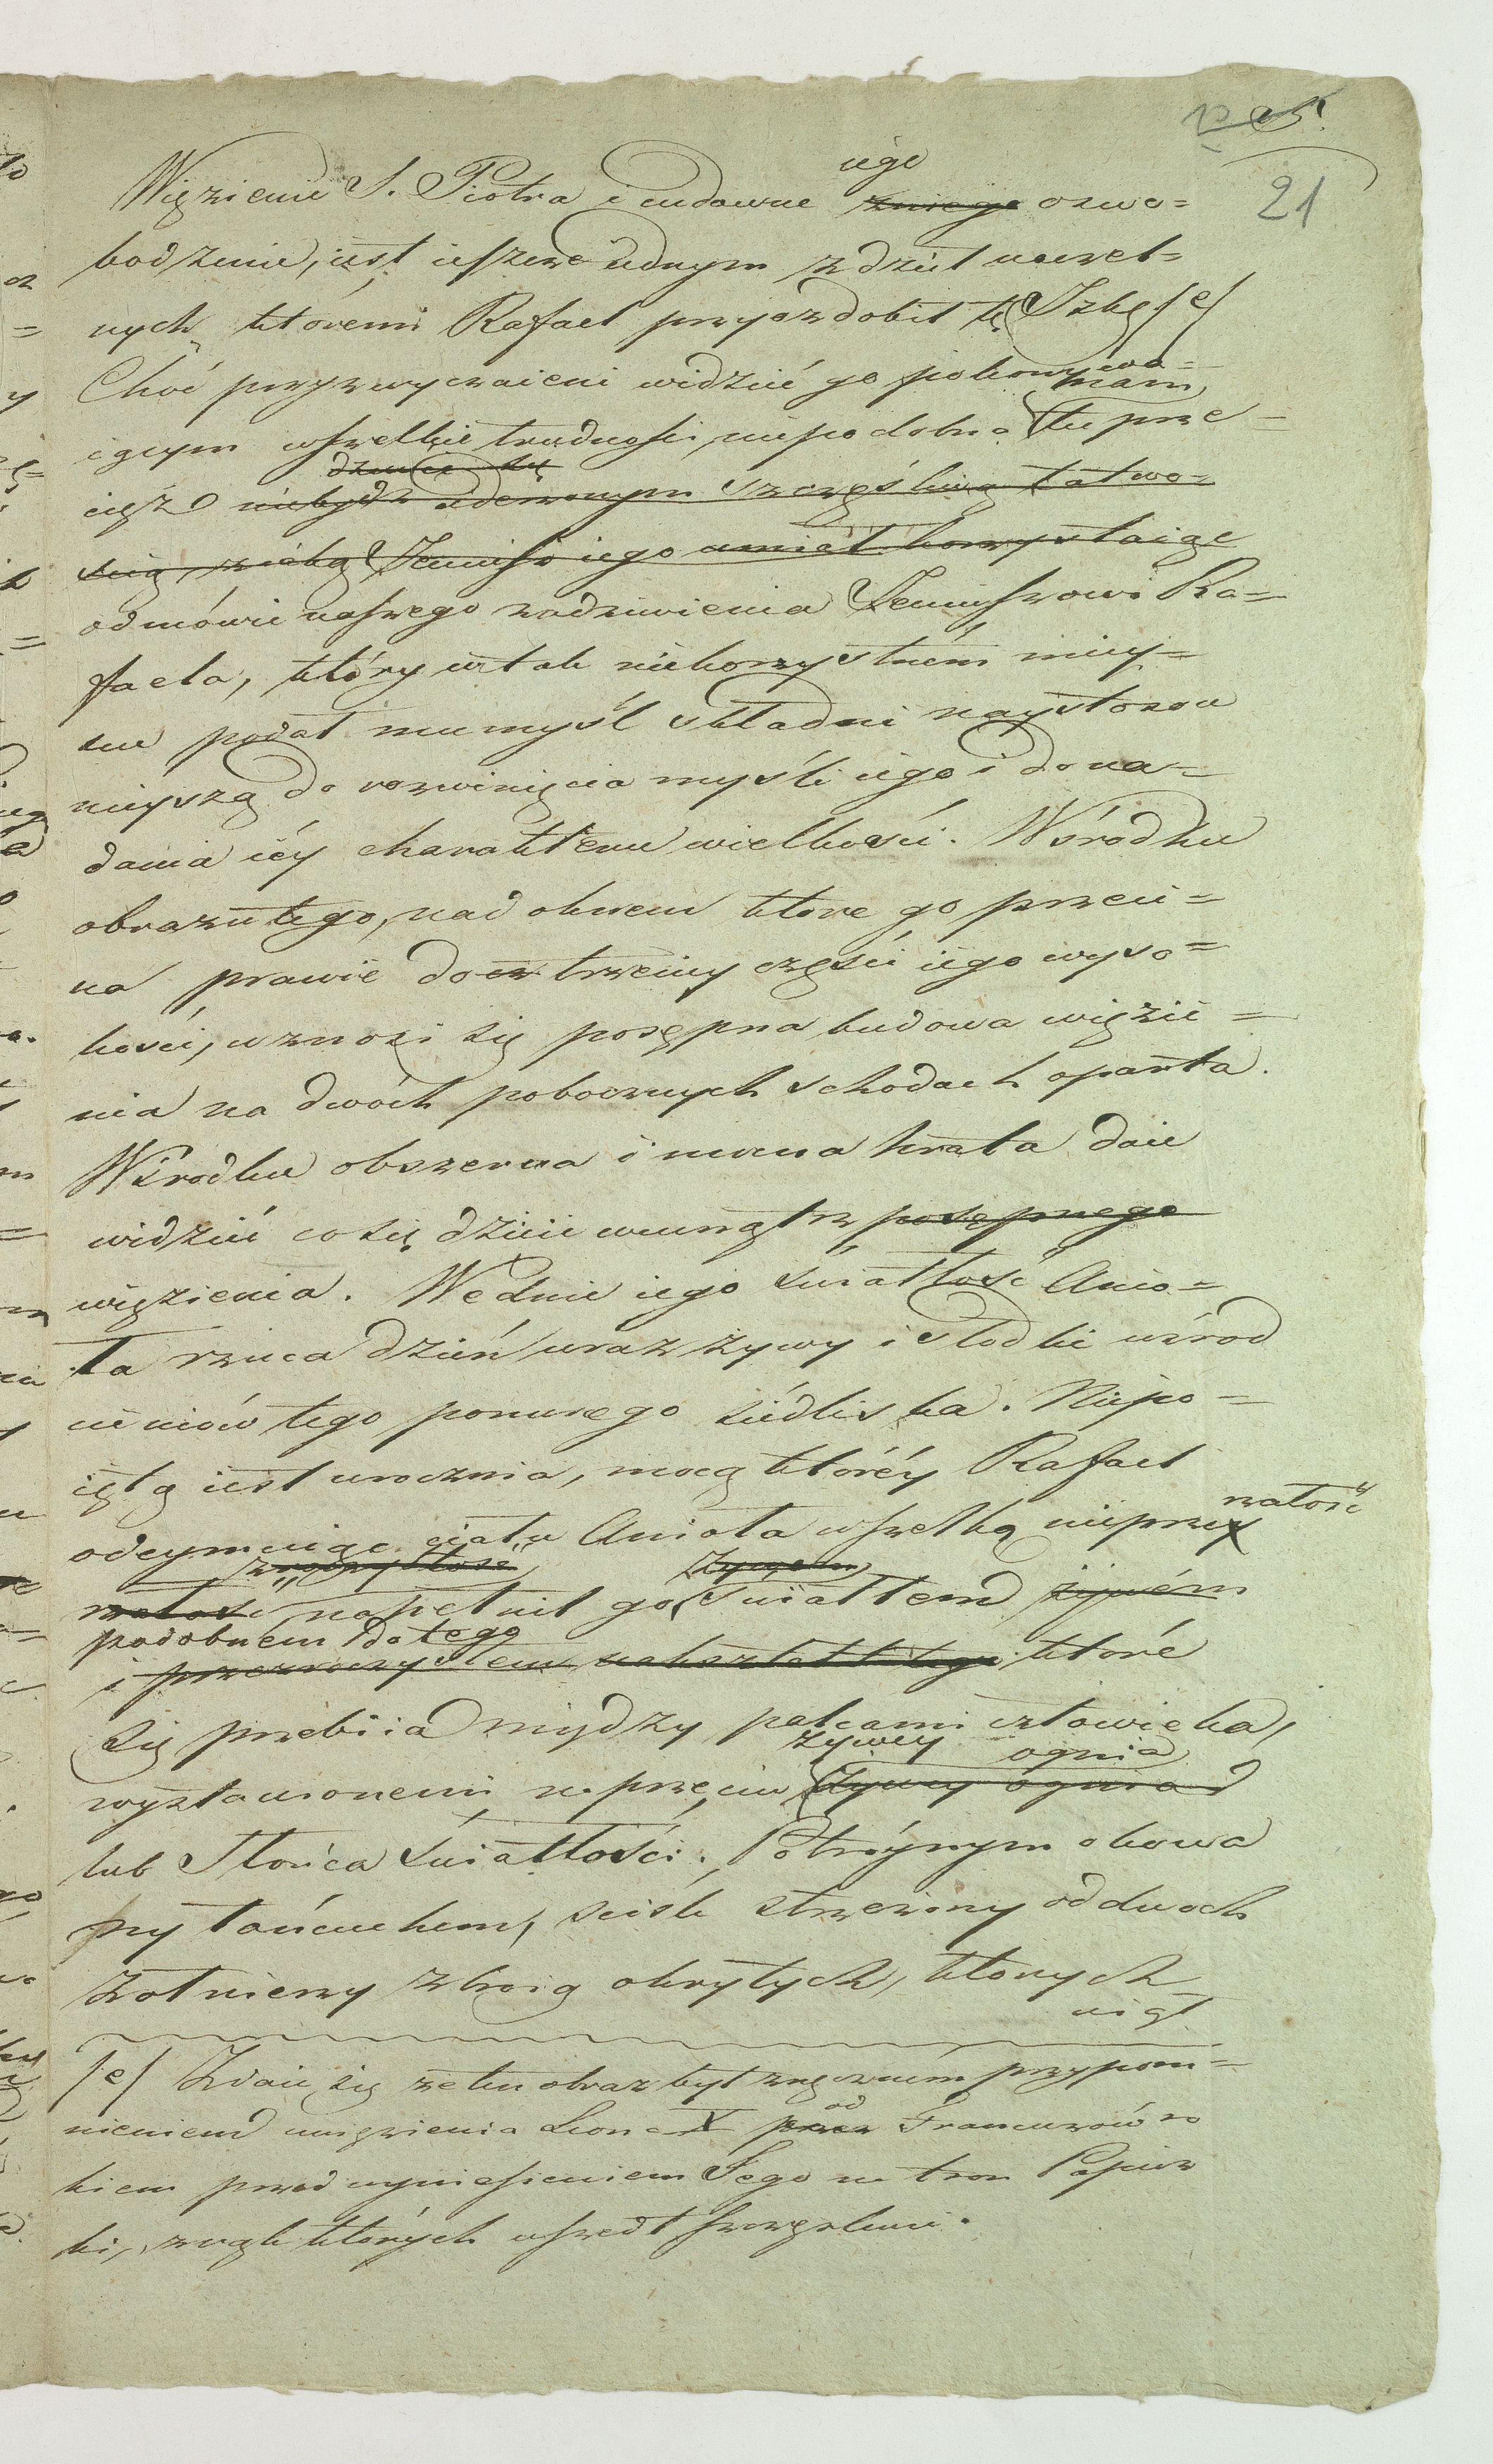 21
iego
Więzienie S. Piotra i cudowne zniego oswo=
bodzenie, iest ieszcze iednym z dzieł uczel=
nych któremi Rafael przyozdobił tę Izbę /e/
Choć przyzwyczaieni widzieć go pokonywa=
nam
iącym wszelkie trudności, niepodobna tu prze=
dziwić się
cięż niebydź uderzonym szczęśliwą łatwo=
scią, z iaką Jeniusz iego umiał korzystaiąc
odmówić naszego zadziwienia Jeniuszowi Ra=
faela, który w tak niekorzystném miey=
scu podał mu myśl składni naystosow
nieyszą do rozwinięcia myśli iego i do na=
dania iéy charakteru wielkości. W środku
obrazu tego, nad oknem które go przeci=
na prawie do trzeciey części iego wyso=
kości, wznosi się posępna budowa więzie=
nia na dwóch pobocznych schodach oparta.
W środku obszerna i mocna krata daie
widzieć co się dzieie wewnątrz posępnego
więzienia. We dnie iego światłość Anio=
ła rzuca dzień wraz żywy i słodki wśrod
cieniów tego ponurego siedliska. Niepo=
iętą iest urocznia, mocą któréy Rafael
załość
odeymuiąc ciału Anioła wszelką nieprzey
zroczystość żywem
załość napełnił go światłem żywém
podobnem do tego
i przezroczystem nakształt tego które
się przebiia między palcami człowieka,
żywey ognia
wystawionemi naprzeciw żywey ognia
lub Słońca światłości. Potróynym okowa
ny łańcuchem, sciśle strzeżony od dwoch
żołnierzy zbroią okrytych, ktorych
/e/ Zdaie się że ten obraz był zręcznem przypom=
od
nieniem uwięzienia Leona X przez Francuzów ro
kiem przed wyniesieniem Jego na tron Papiez
ki, z rąk których uszedł szczęśliwie.